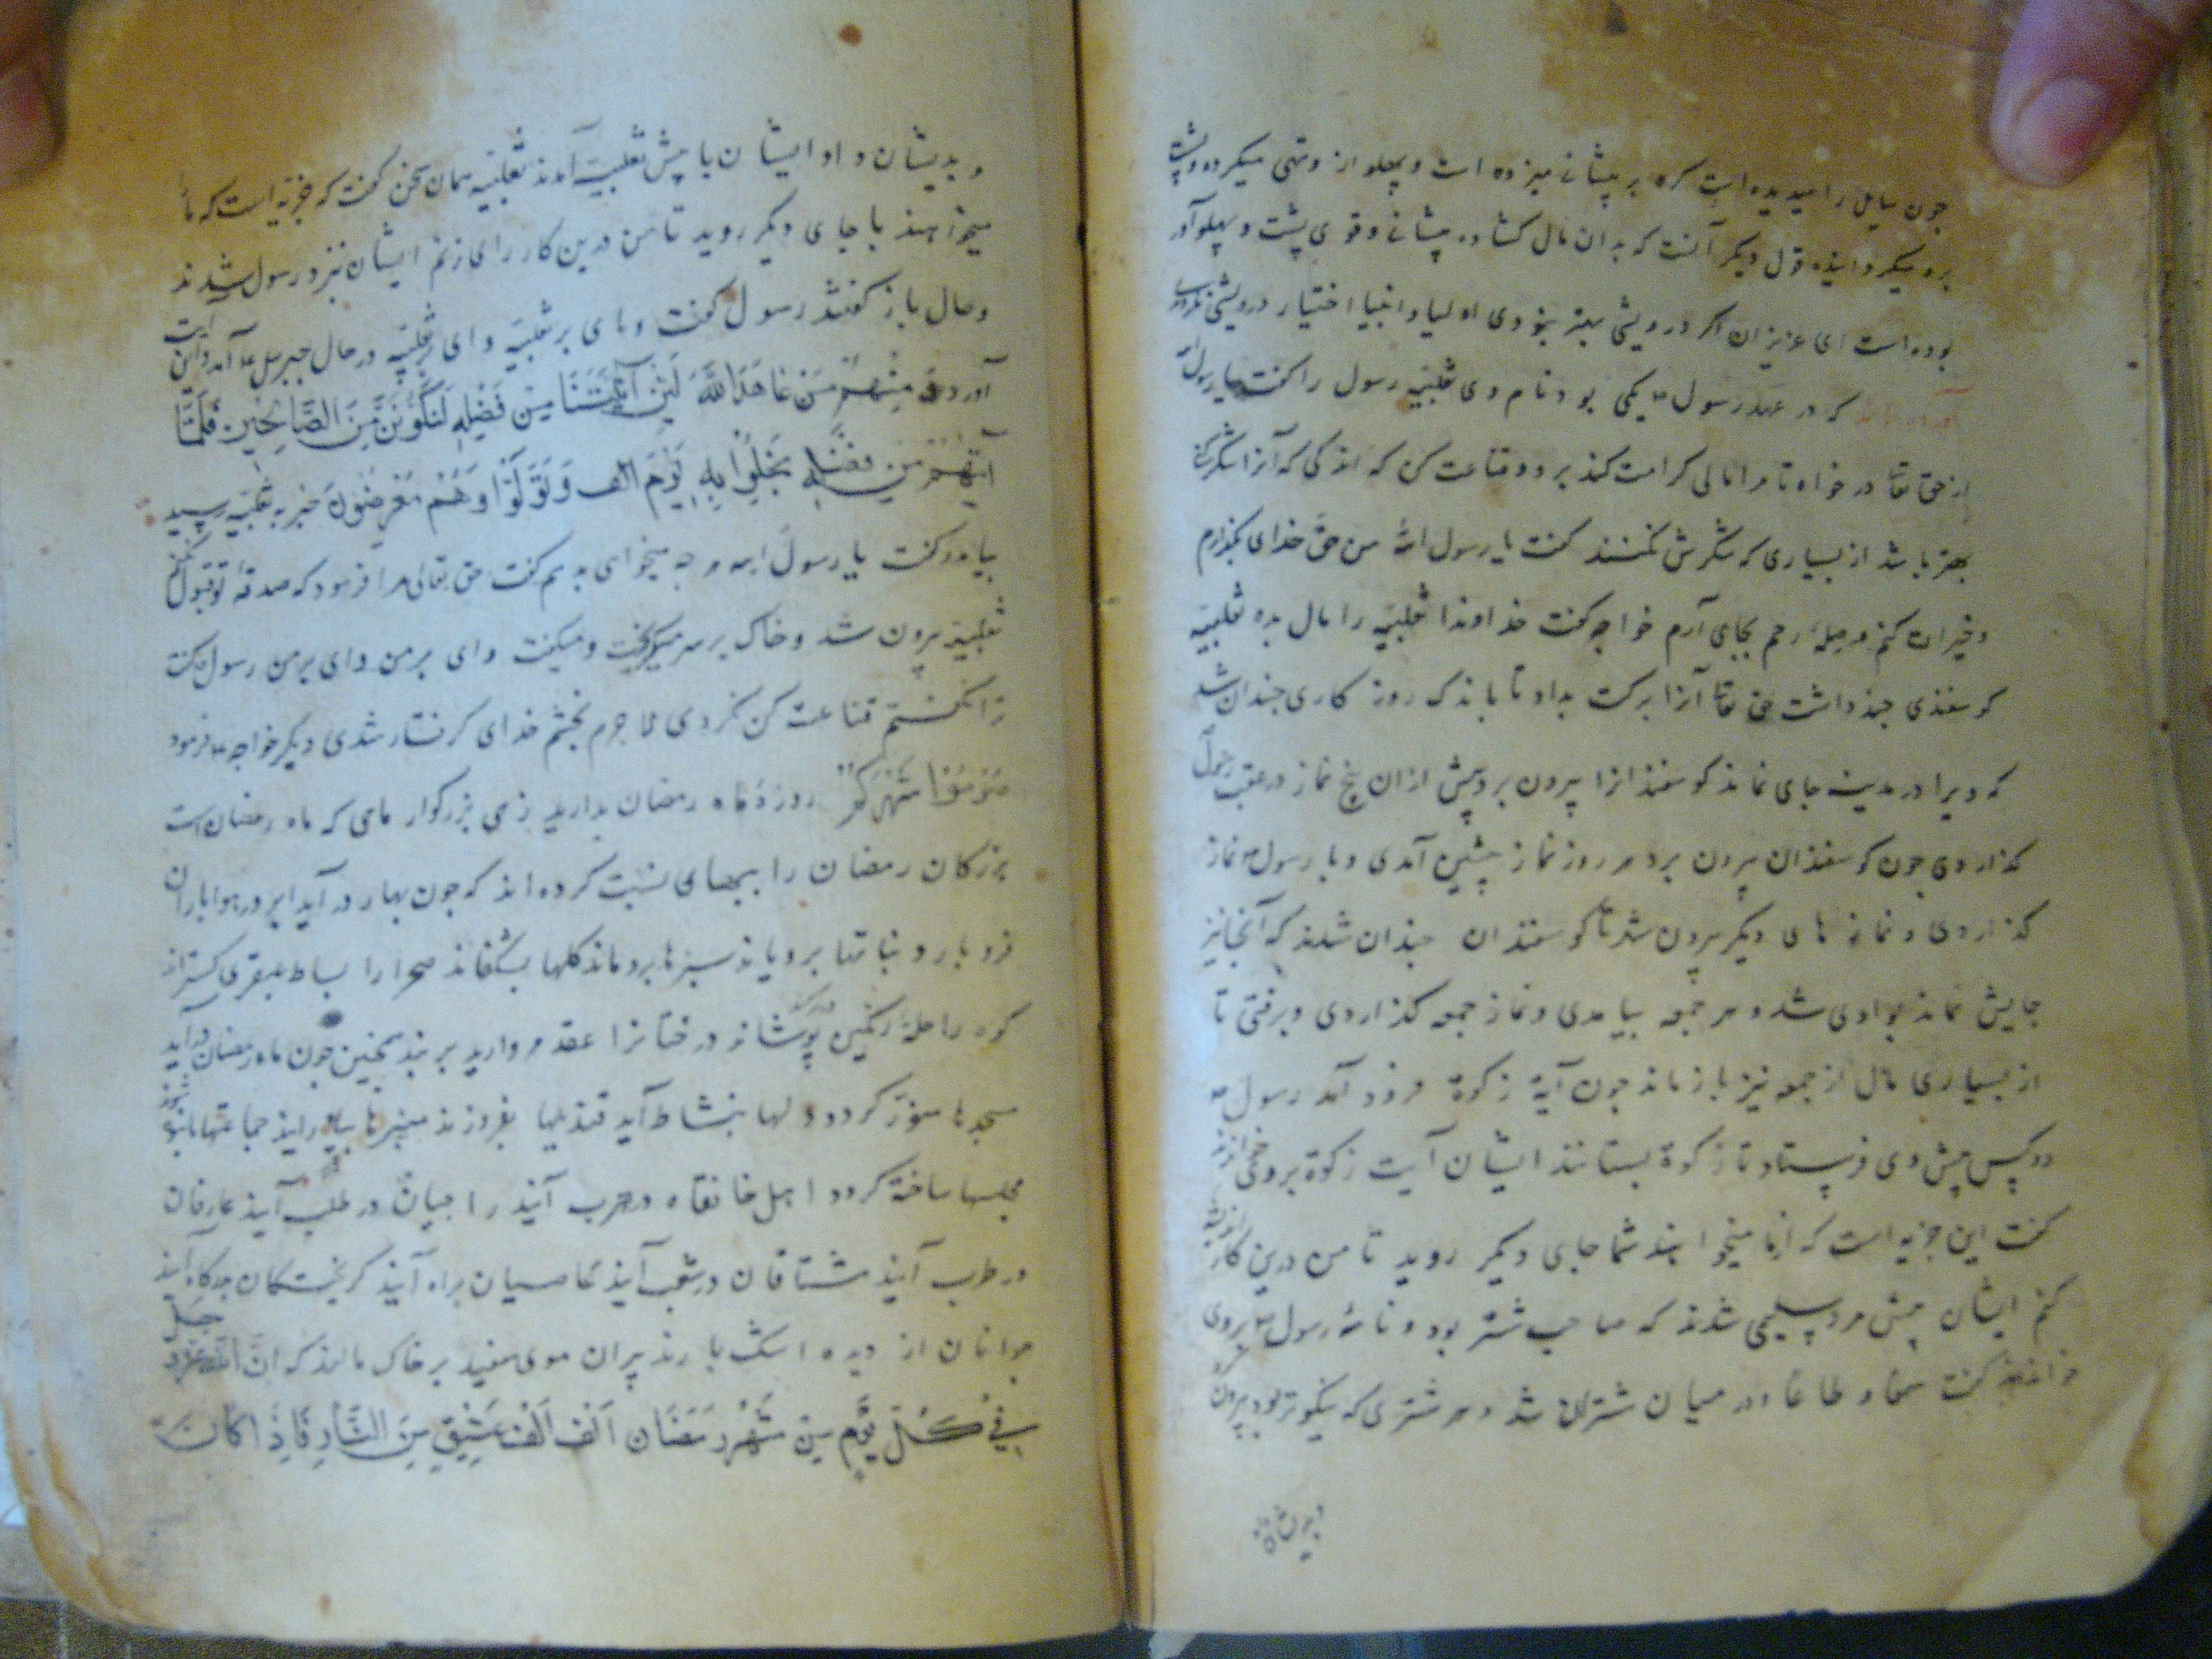 چون سایل را میدیده است کره بر پیشانی میزده است و پهلو از وتهی میکرده و پشت
برو میکردانیده قول دیکر آنست که بدان مال کشاده پیشانی و قوی پشت و پهلو آور
بوده است ای عزیزان اکر درویشی بهتر نبودی اولیا و انبیا اختیار درویشی نکردندی
آورده اند که در عهد رسول یکی بود نام وی ثعلبیه رسول را کفت یا رسول الله
از حق تعا در خواه تا مرا مالی کرامت کند برو و قناعت کن که اندکی که آنرا شکر
بهتر باشد از بسیاری که شکرش نکنند کفت یا رسول الله من حق خدای بکذارم
و خیرات کنم و صلهٔ رحم بجای آرم خواجه کفت خداوندا ثعلبیه را مال بده ثعلبیه
کوسفندی چند داشت حق تعا آنرا برکت بداد تا باندک روز کاری چندان شد
که ویرا در مدینه جای نماند کوسفندانرا بیرون برد پیش ازان پنج نماز در عقب رسول
کذاردی چون کوسفندان بیرون برد هر روز نماز پیشین آمدی و با رسول نماز
کذاردی و نماز های دیکر بیرون شد تا کوسفندان چندان شدند که آنجا نیز
جایش نماند بوادی شد و هر جمعه بیامدی و نماز جمعه کذاردی و برفتی تا
از بسیاری مال از جمعه نیز باز ماند چون آیهٔ زکوة فرود آمد رسول
دو کس پیش وی فرستاد تا زکوة بستانند ایشان آیت زکوة برو خواندند
کفت این جزیه است که از ما میخواهند شما جای دیکر روید تا من درین کار اندیشه
کنم ایشان پیش مرد سلیمی شدند که صاحب شتر بود و نامهٔ رسول بروی
خواندند کفت سمعا و طاعا و در میان شتران شد و هر شتری که نیکوتر بود بیرون کرد
و بدیشان داد
و بدیشان داد ایشان با پیش ثعلبیه آمدند ثعلبیه همان سخن کفت که جزیه است که ما
میخواهند با جای دیکر روید تا من درین کار رای زنم ایشان نزد رسول شدند
و حال باز کفتند رسول کفت وای بر ثعلبیه وای بر ثعلبیه در حال جبریل آمد و این آیت
آورد وَ مِنْهُمْ مَنْ عَاهَدَ اللَّهَ لَئِنْ آتَيْتَنَا مِنْ فَضْلِهِ لَنَكُونَنَّ مِنَ الصَّالِحِينَ فَلَمَّا
آتَيهُمْ مِنْ فَضْلِهِ بَخِلُوا بِهِ وَتَوَلَّوْا وَهُمْ مُعْرِضُونَ خبر به ثعلبیه رسید
بیامد و کفت یا رسول الله هر چه میخواهی بدهم کفت حق تعالی مرا فرمود که صدقهٔ تو قبول نکنم
ثعلبیه بیرون شد و خاک بر سر میریخت و میکفت وای بر من وای بر من رسول کفت
ترا نکفتم قناعت کن نکردی لا جرم بخشم خدای کرفتار شدی دیکر خواجه فرمود
صُومُوا شَهْرَكُمْ روزهٔ ماه رمضان بدارید زهی بزرکوار ماهی که ماه رمضان است
بزرکان رمضان را ببهاری نسبت کرده اند که چون بهار در آید ابر در هوا باران
فرو بارد و نباتها برویاند سبزها بردماند کلها بشکفاند صحرا را بساط عبقری کستراند
کوه را حلهٔ رنکین پوشاند درختانرا عقد مروارید بر بندد همچنین چون ماه رمضان در آید
مسجدها منور کردد دلها بنشاط آید قندیلها بفروزند منبرها بیارایند جماعتها انبوه شود
مجلسها ساخته کردد اهل خانقاه در حرب آیند راجیان در طلب آیند عارفان
در طرب آیند مشتاقان در شغب آیند عاصیان براه آیند کریختکان بدرکاه آیند
جوانان از دیده اشک بارند پیران موی سفید بر خاک مالند که ان الله عز و جل
فِي كُلِّ يَوْمٍ مِنْ شَهْرِ رَمَضَان اَلْف اَلْف عَتِيقٍ مِنَ النَّارِ فَاِذَا كَانَ